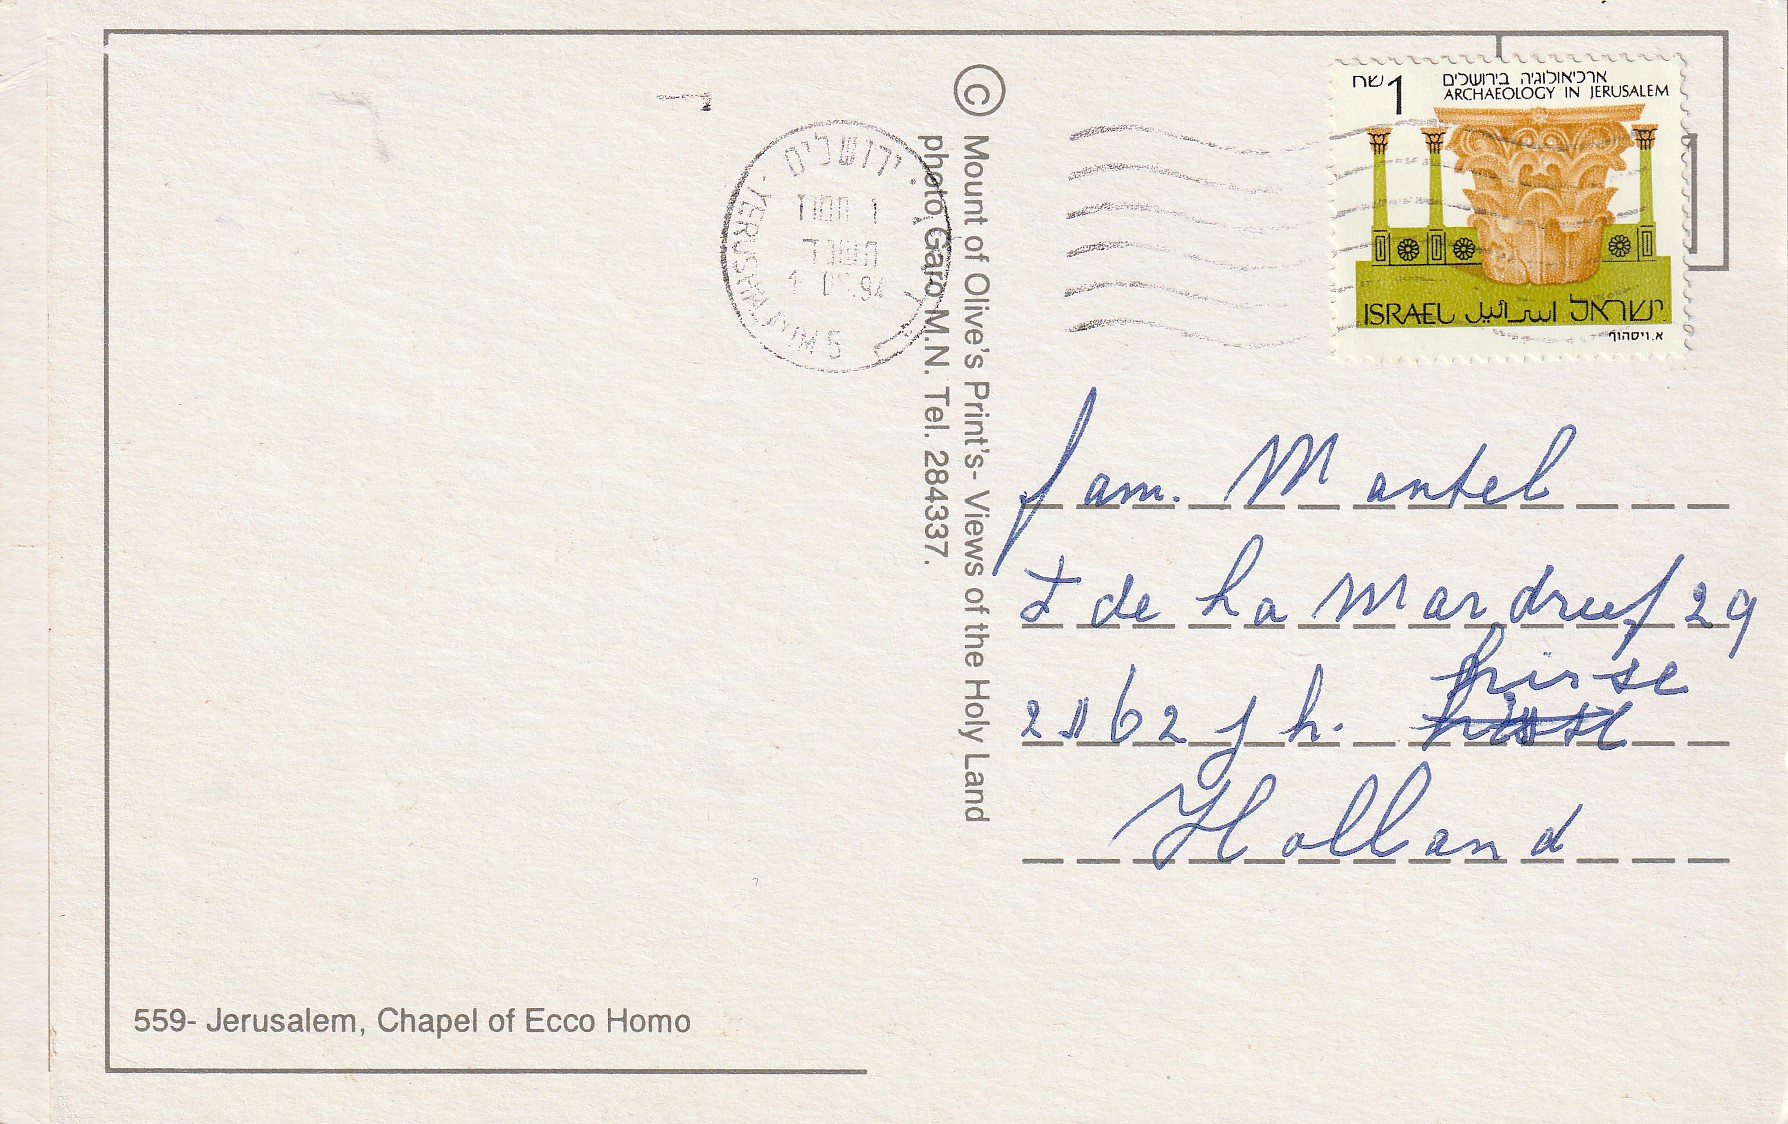 559- Jerusalem, Chapel of Ecco Homo
ירושלים
תמוז
תשנד
.94
YERUSHALAYIM 5
© Mount of Olive's Print's- Views of the Holy Land
photo Garo M.N. Tel. 284337.
שח 1
ארכיאולוגיה בירושלים
ARCHAEOLOGY IN JERUSALEM
ISRAEL اسرائيل ישראל
א. ויסהוף
fam. Mantel
de La Mar dreef 29
2162 jh. lisse
Holland